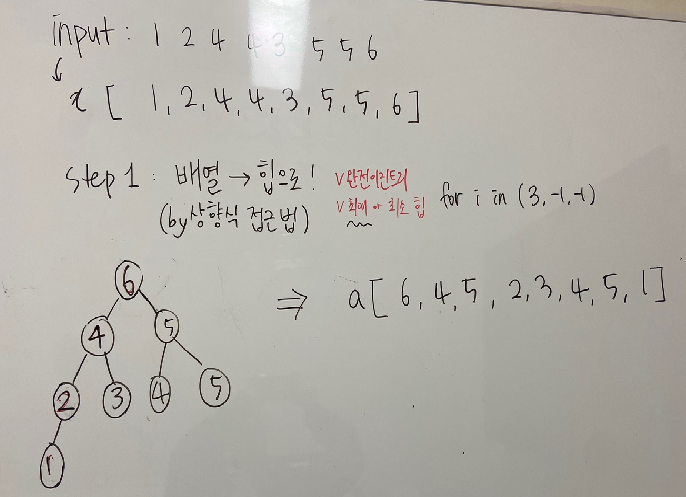 input : 1 2 4 4 3 5 5 6
x [ 1, 2, 4, 4, 3, 5, 5, 6 ]
step 1 : 배열 → 힙으로!
(by 상향식 접근법)
v 완전이진트리
v 최대 or 최소 힙
for i in (3, -1, -1)
6
4 5
2 3 4 5
1
⇒ a [ 6, 4, 5, 2, 3, 4, 5, 1 ]